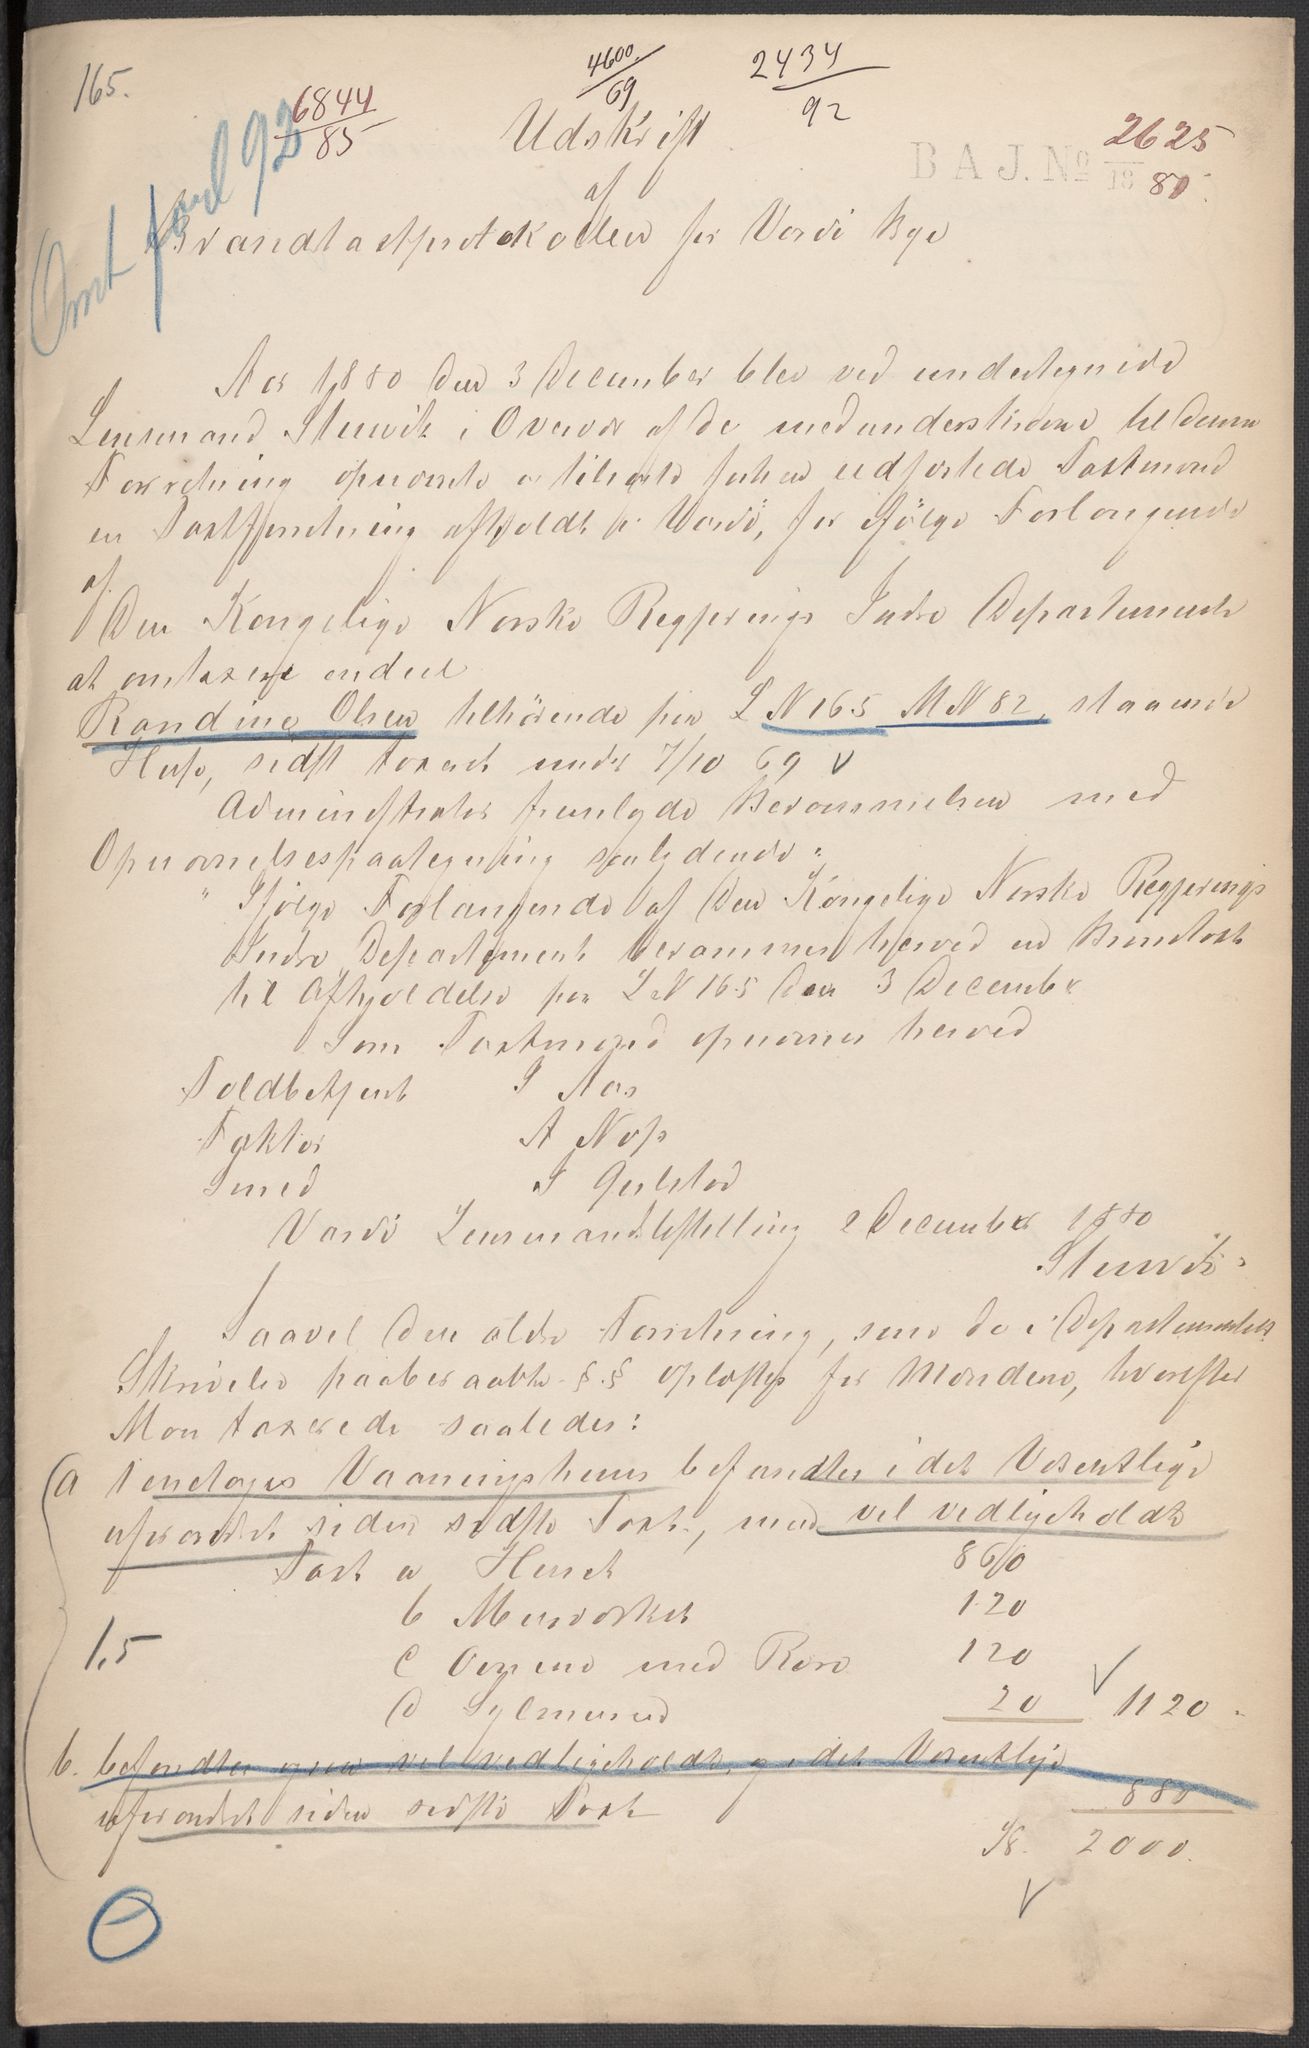 165.
4600
69
2434
92
6844
85
Omt paa 92
Udskrift
B A J. No 2625
18 80.
af
Brandtaxtprotokollen for Vardö Bye
Aar 1880 den 3 December blev ved undertegnede
Lensmand Stuwitz i Overvær af de medunderskrevne til denne
Forretning opnævnte
en Taxtforretning afholdt i Vardö, for ifölge Forlangende
af
Den Kongelige Norske Regjerings Indre Departement
at omtaxere endeel
Randine Olsen tilhörende paa L N 165 M N 82, staaende
Huse, sidst taxeret under 7/10 69
Administrator fremlagde Berammelsen med
Opnævnelsespaategning saalydende:
"Ifölge Forlangende af Den Kongelige Norske Regjerings
Indre Departement berammes herved en Brandtaxt
til Afholdelse paa L N 165 den 3 December
Som Taxtmænd opnævnes herved
Toldbetjent I Aas
Faktor A
Smed
Vardö Lensmandsbestilling 2 December 1880
Stuwitz"
Saavel den ældre Forretning, som de i Departementets
Skrivelse paaberaabte §§ oplæstes for Mændene, hvorefter
Man taxerede saaledes:
a 1 enetages Vaaningshuus befandtes i det Væsentlige
uforandret siden sidste Taxt, men vel vedligeholdt
Taxt a Huset 860
b Muurværket 120
1,5
c Ovnene med Röre 120
d Sylmuren 20 1120
b. befandtes ogsaa vel vedligeholdt, og i det Væsentlige
uforandret siden sidste Taxt 880
2000.